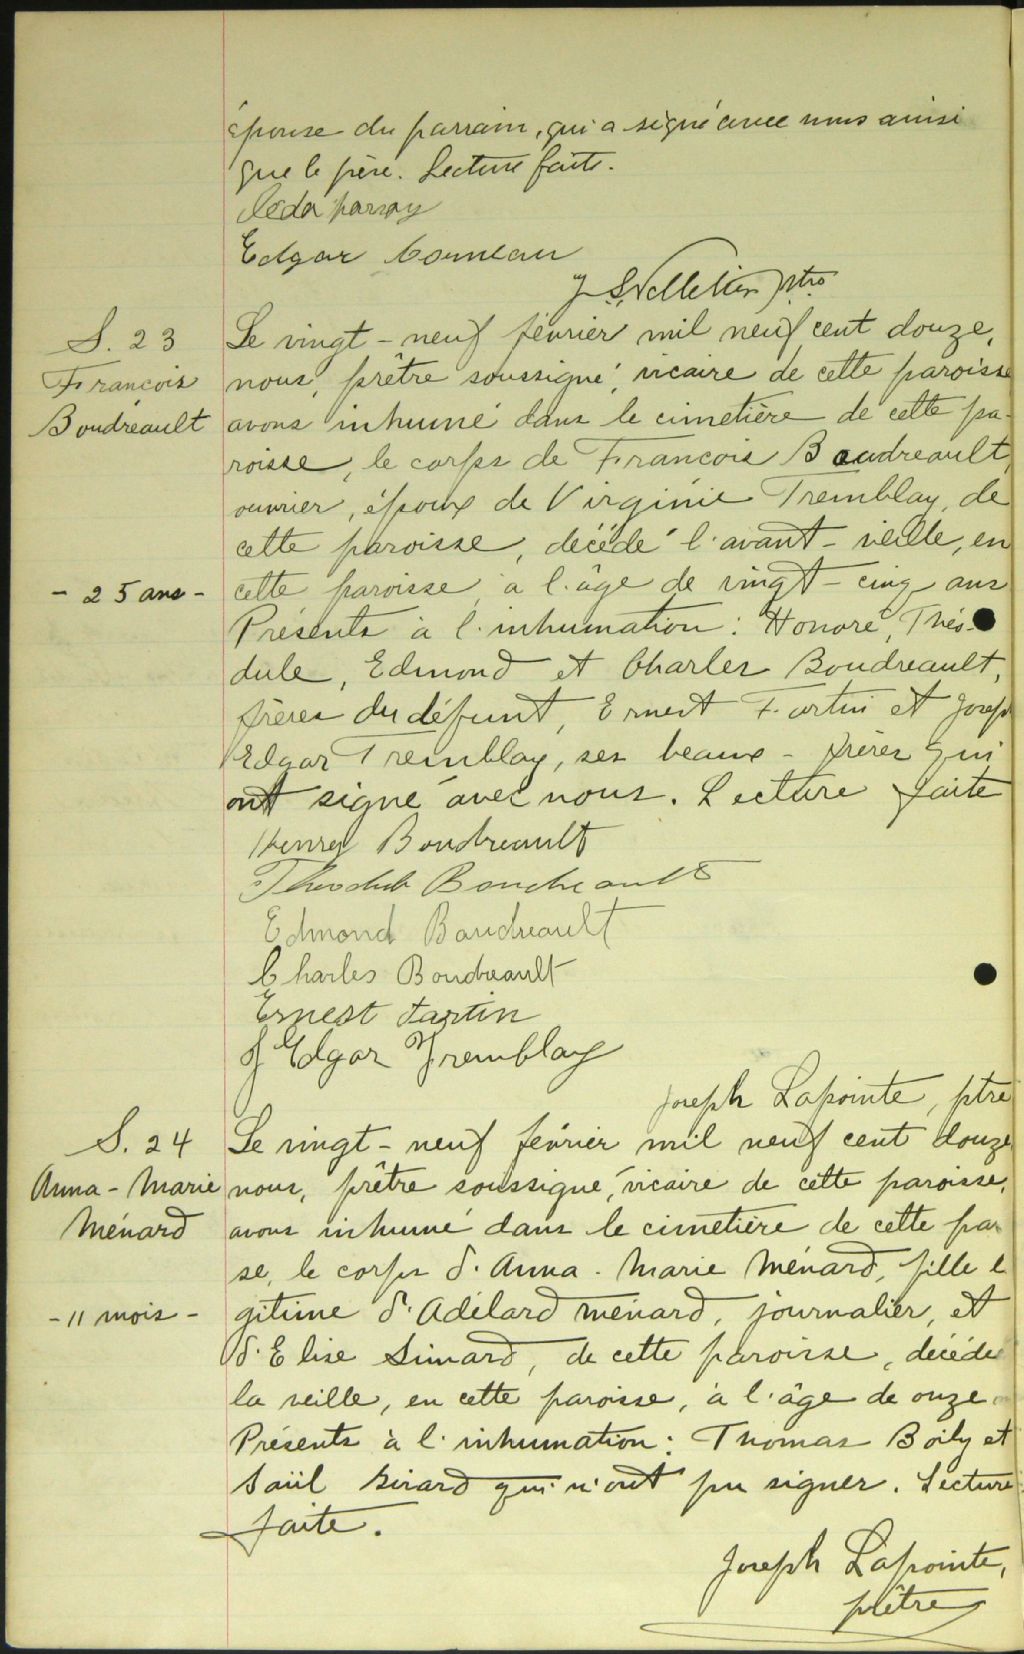 épouse du parrain, qui a signé avec nous ainsi
que le père. Lecture faite.
Edgar Comeau
J S Pelletier ptre
S. 23
François
Boudréault
- 25 ans -
Le vingt-neuf février mil neuf cent douze,
nous, prêtre soussigné, vicaire de cette paroisse
avons inhumé dans le cimetière de cette pa-
roisse, le corps de François Boudreault,
ouvrier, époux de Virginie Tremblay, de
cette paroisse, décédé l'avant-veille, en
cette paroisse, à l'âge de vingt-cinq ans
Présents à l'inhumation: Honoré, Théo-
dule, Edmond et Charles Boudreault,
frères du défunt, Ernest Fortin et Joseph
Edgar Tremblay, ses beaux-frères qui
ont signé avec nous. Lecture faite
Henry Boudreault
Theodule Boudreault
Edmond Boudreault
Charles Boudreault
Ernest Fortin
J Edgar Tremblay
Joseph Lapointe, ptre
S. 24
Anna-Marie
Ménard
- 11 mois -
Le vingt-neuf février mil neuf cent douze
nous, prêtre soussigné, vicaire de cette paroisse,
avons inhumé dans le cimetière de cette par
se, le corps d'Anna-Marie Ménard, fille l
gitime d'Adélard Ménard, journalier, et
d'Elise Simard, de cette paroisse, décédée
la veille, en cette paroisse, à l'âge de onze
Présents à l'inhumation: Thomas Boily et
Saül Girard qui n'ont pu signer. Lecture
faite.
Joseph Lapointe,
prêtre